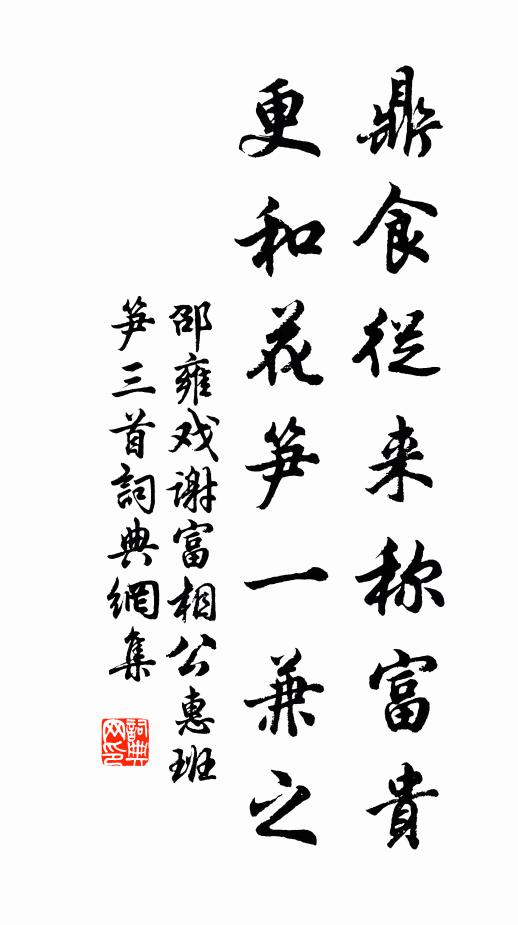 鼎食從来称富貴
更和花笋一兼之
邵雍戏谢富相公惠班
笋三首詞典網集
詞典
网印